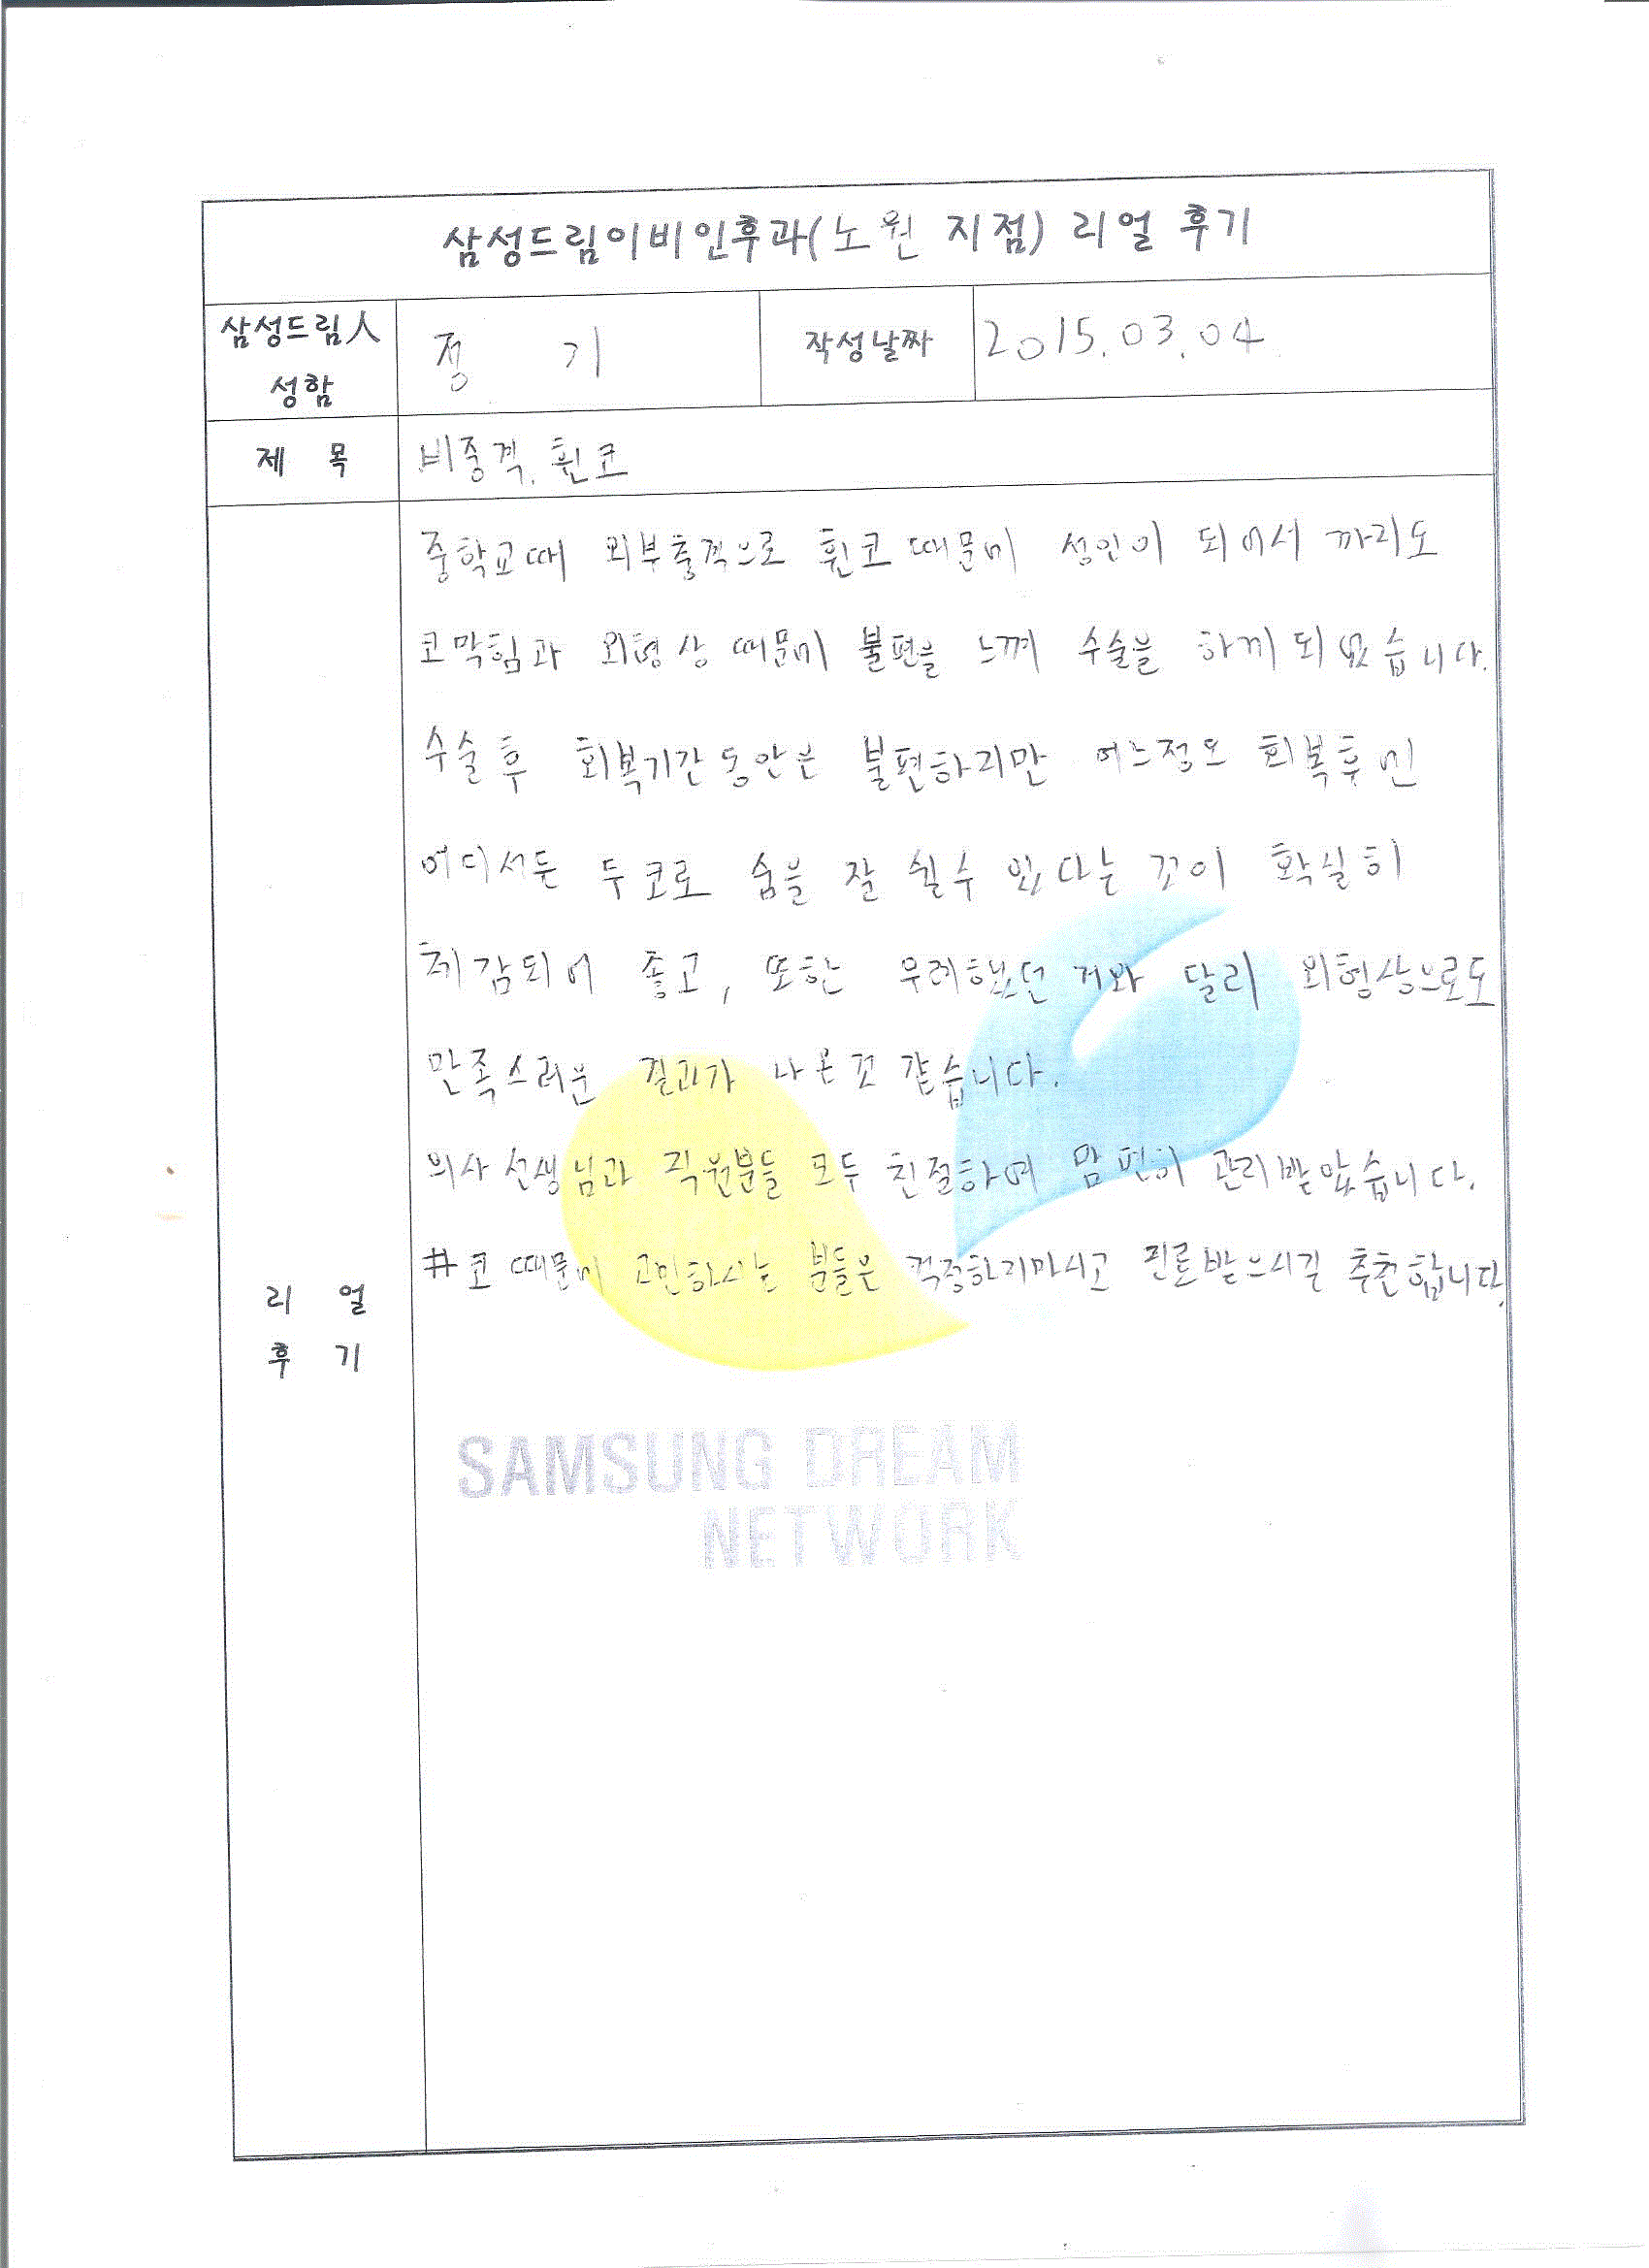 삼성드림이비인후과(노원 지점) 리얼 후기
삼성드림人 성함
정 기
작성날짜
2015.03.04
제 목
비중격. 휜코
중학교때 외부충격으로 휜코 때문에 성인이 되어서 까지도
코막힘과 외형상 때문에 불편을 느껴 수술을 하게되었습니다.
수술후 회복기간동안은 불편하지만 어느정도 회복후엔
어디서든 두코로 숨을 잘 쉴수 있다는 것이 확실히
체감되어 좋고, 또한 우려했던 거와 달리 외형상으로도
만족스러운 결과가 나온것 같습니다.
의사선생님과 직원분들 모두 친절하며 맘 편히 관리받았습니다.
#코 때문에 고민하시는 분들은 걱정하지마시고 진료받으시길 추천합니다.
리 얼
후 기
SAMSUNG DREAM
NETWORK